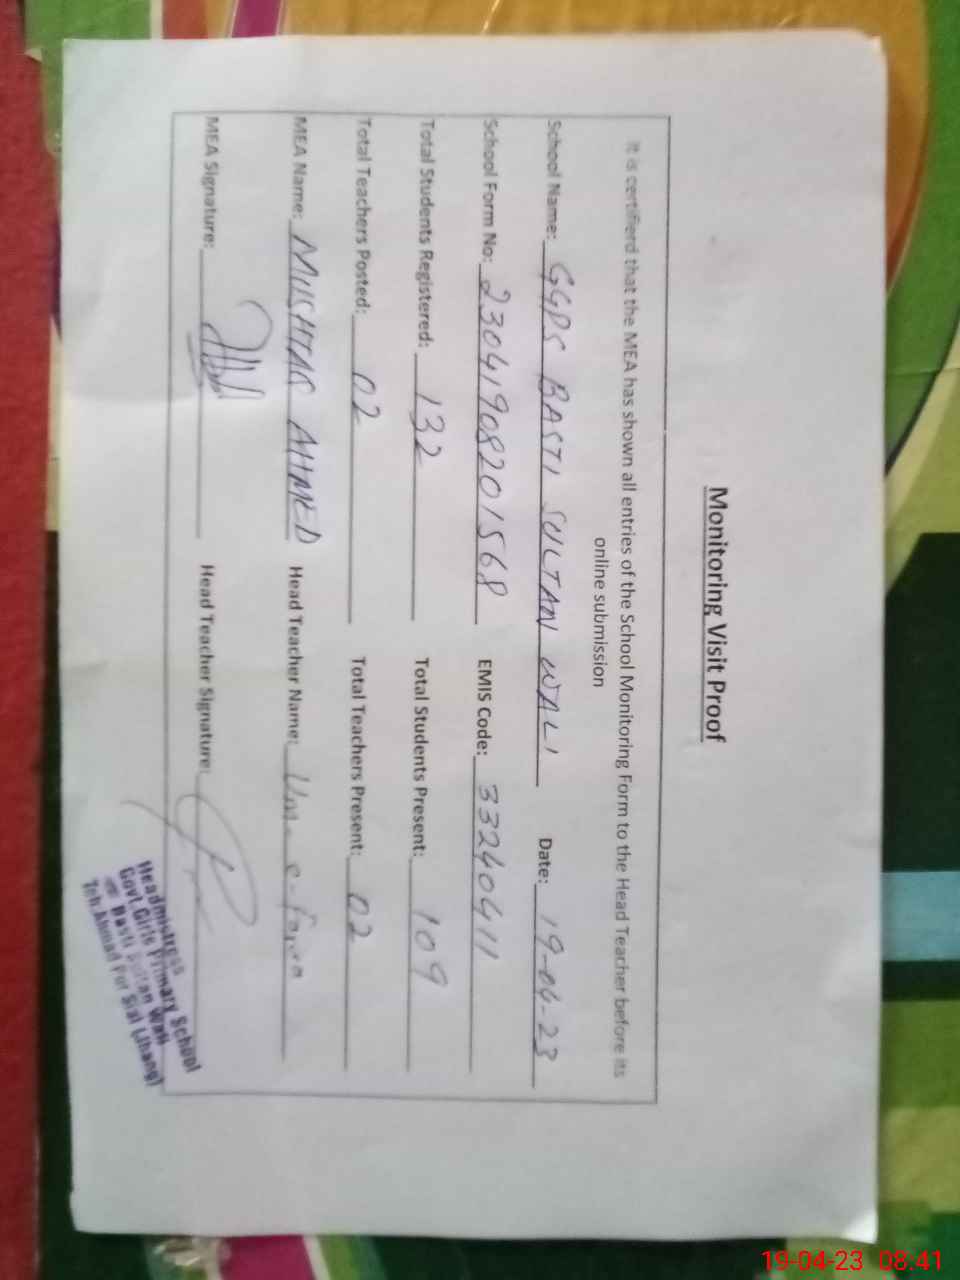 Monitoring Visit Proof
It is certifierd that the MEA has shown all entries of the School Monitoring Form to the Head Teacher before its
online submission
School Name: GGPS BASTI SULTAN WALI Date: 19-04-23
School Form No: 23041908201568 EMIS Code: 33240411
Total Students Registered: 132 Total Students Present: 109
Total Teachers Posted: 02 Total Teachers Present: 02
MEA Name: MUSHTAQ AHMED Head Teacher Name:
MEA Signature: Head Teacher Signature:
Headmistress
Govt.Girls Primary School
Basti Sultan Wali
Teh.Ahmad Pur Sial (Jhang)
19-04-23 08:41